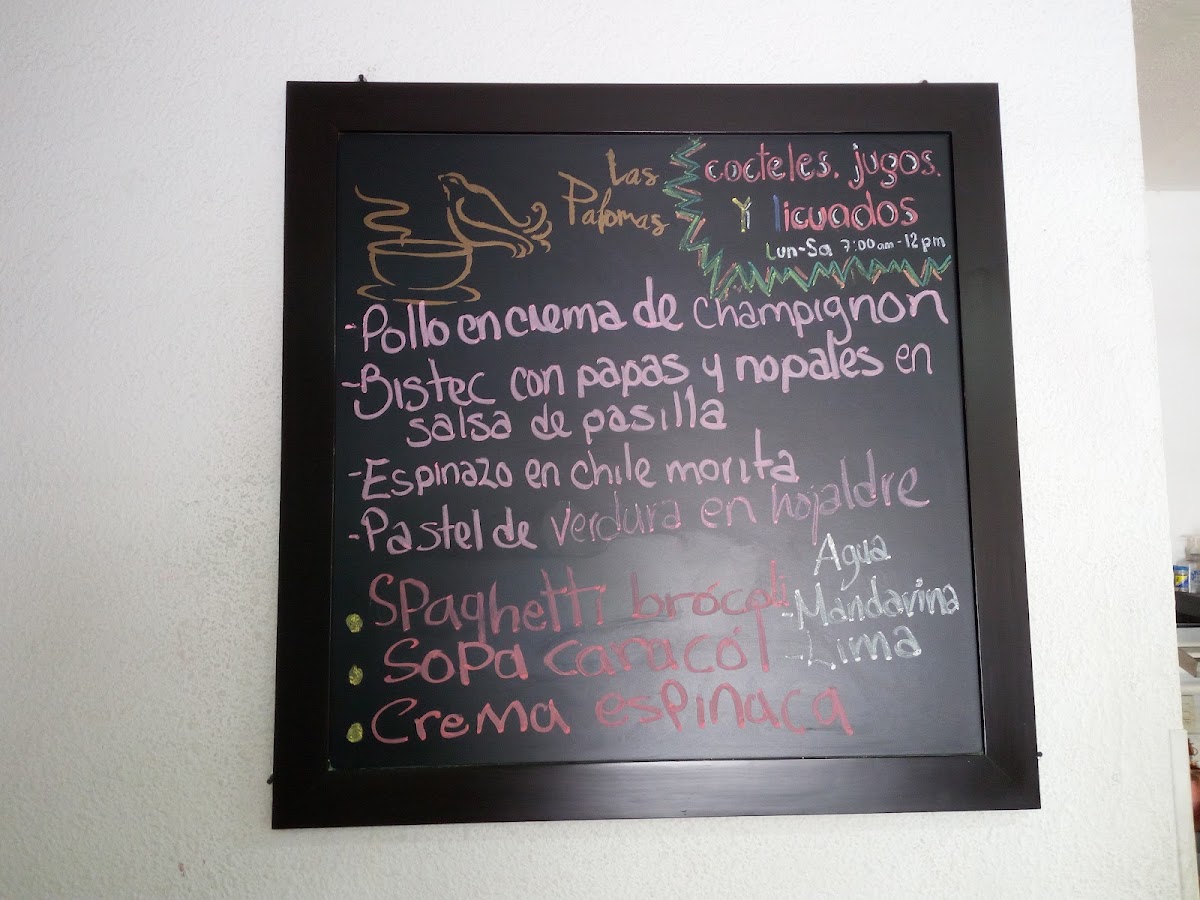 Las
Palomas
cocteles. jugos.
Y licuados
Lun-Sa 7:00am-12pm
-Pollo en crema de champignon
-Bistec con papas y nopales en
salsa de pasilla
-Espinazo en chile morita
-Pastel de verdura en hojaldre
Spaghetti brócoli
Sopa caracól
Crema espinaca
Agua
-Mandarina
-Lima